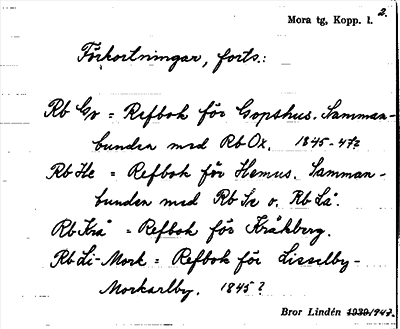 2.
Mora tg, Kopp. l.
Förkortningar, forts.:
Rb Go = Refbok för Gopshus. Samman-
bunden med Rb Ox. 1845-47?
Rb He = Refbok för Hemus. Samman-
bunden med Rb Se o. Rb Lå.
Rb Krå = Refbok för Kråkberg.
Rb Li-Mork = Refbok för Lisselby-
Morkarlby. 1845?
Bror Lindén 1939/1947.